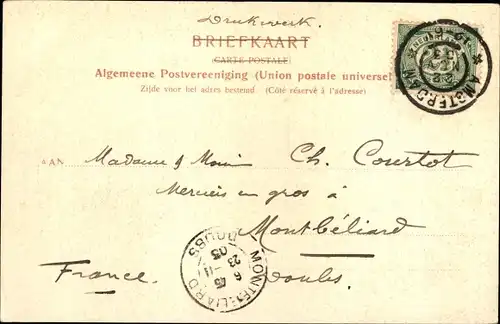 Drukwerk.
BRIEFKAART
(CARTE POSTALE)
Algemeene Postvereeniging (Union postale universel
Zijde voor het adres bestemd. (Côté réservé à l'adresse)
AMSTERDAM
aAN Madame & Ch. Courtot
Merciers en gros à
Montbéliard
France. Doubs.
MONTBELIARD
DOUBS